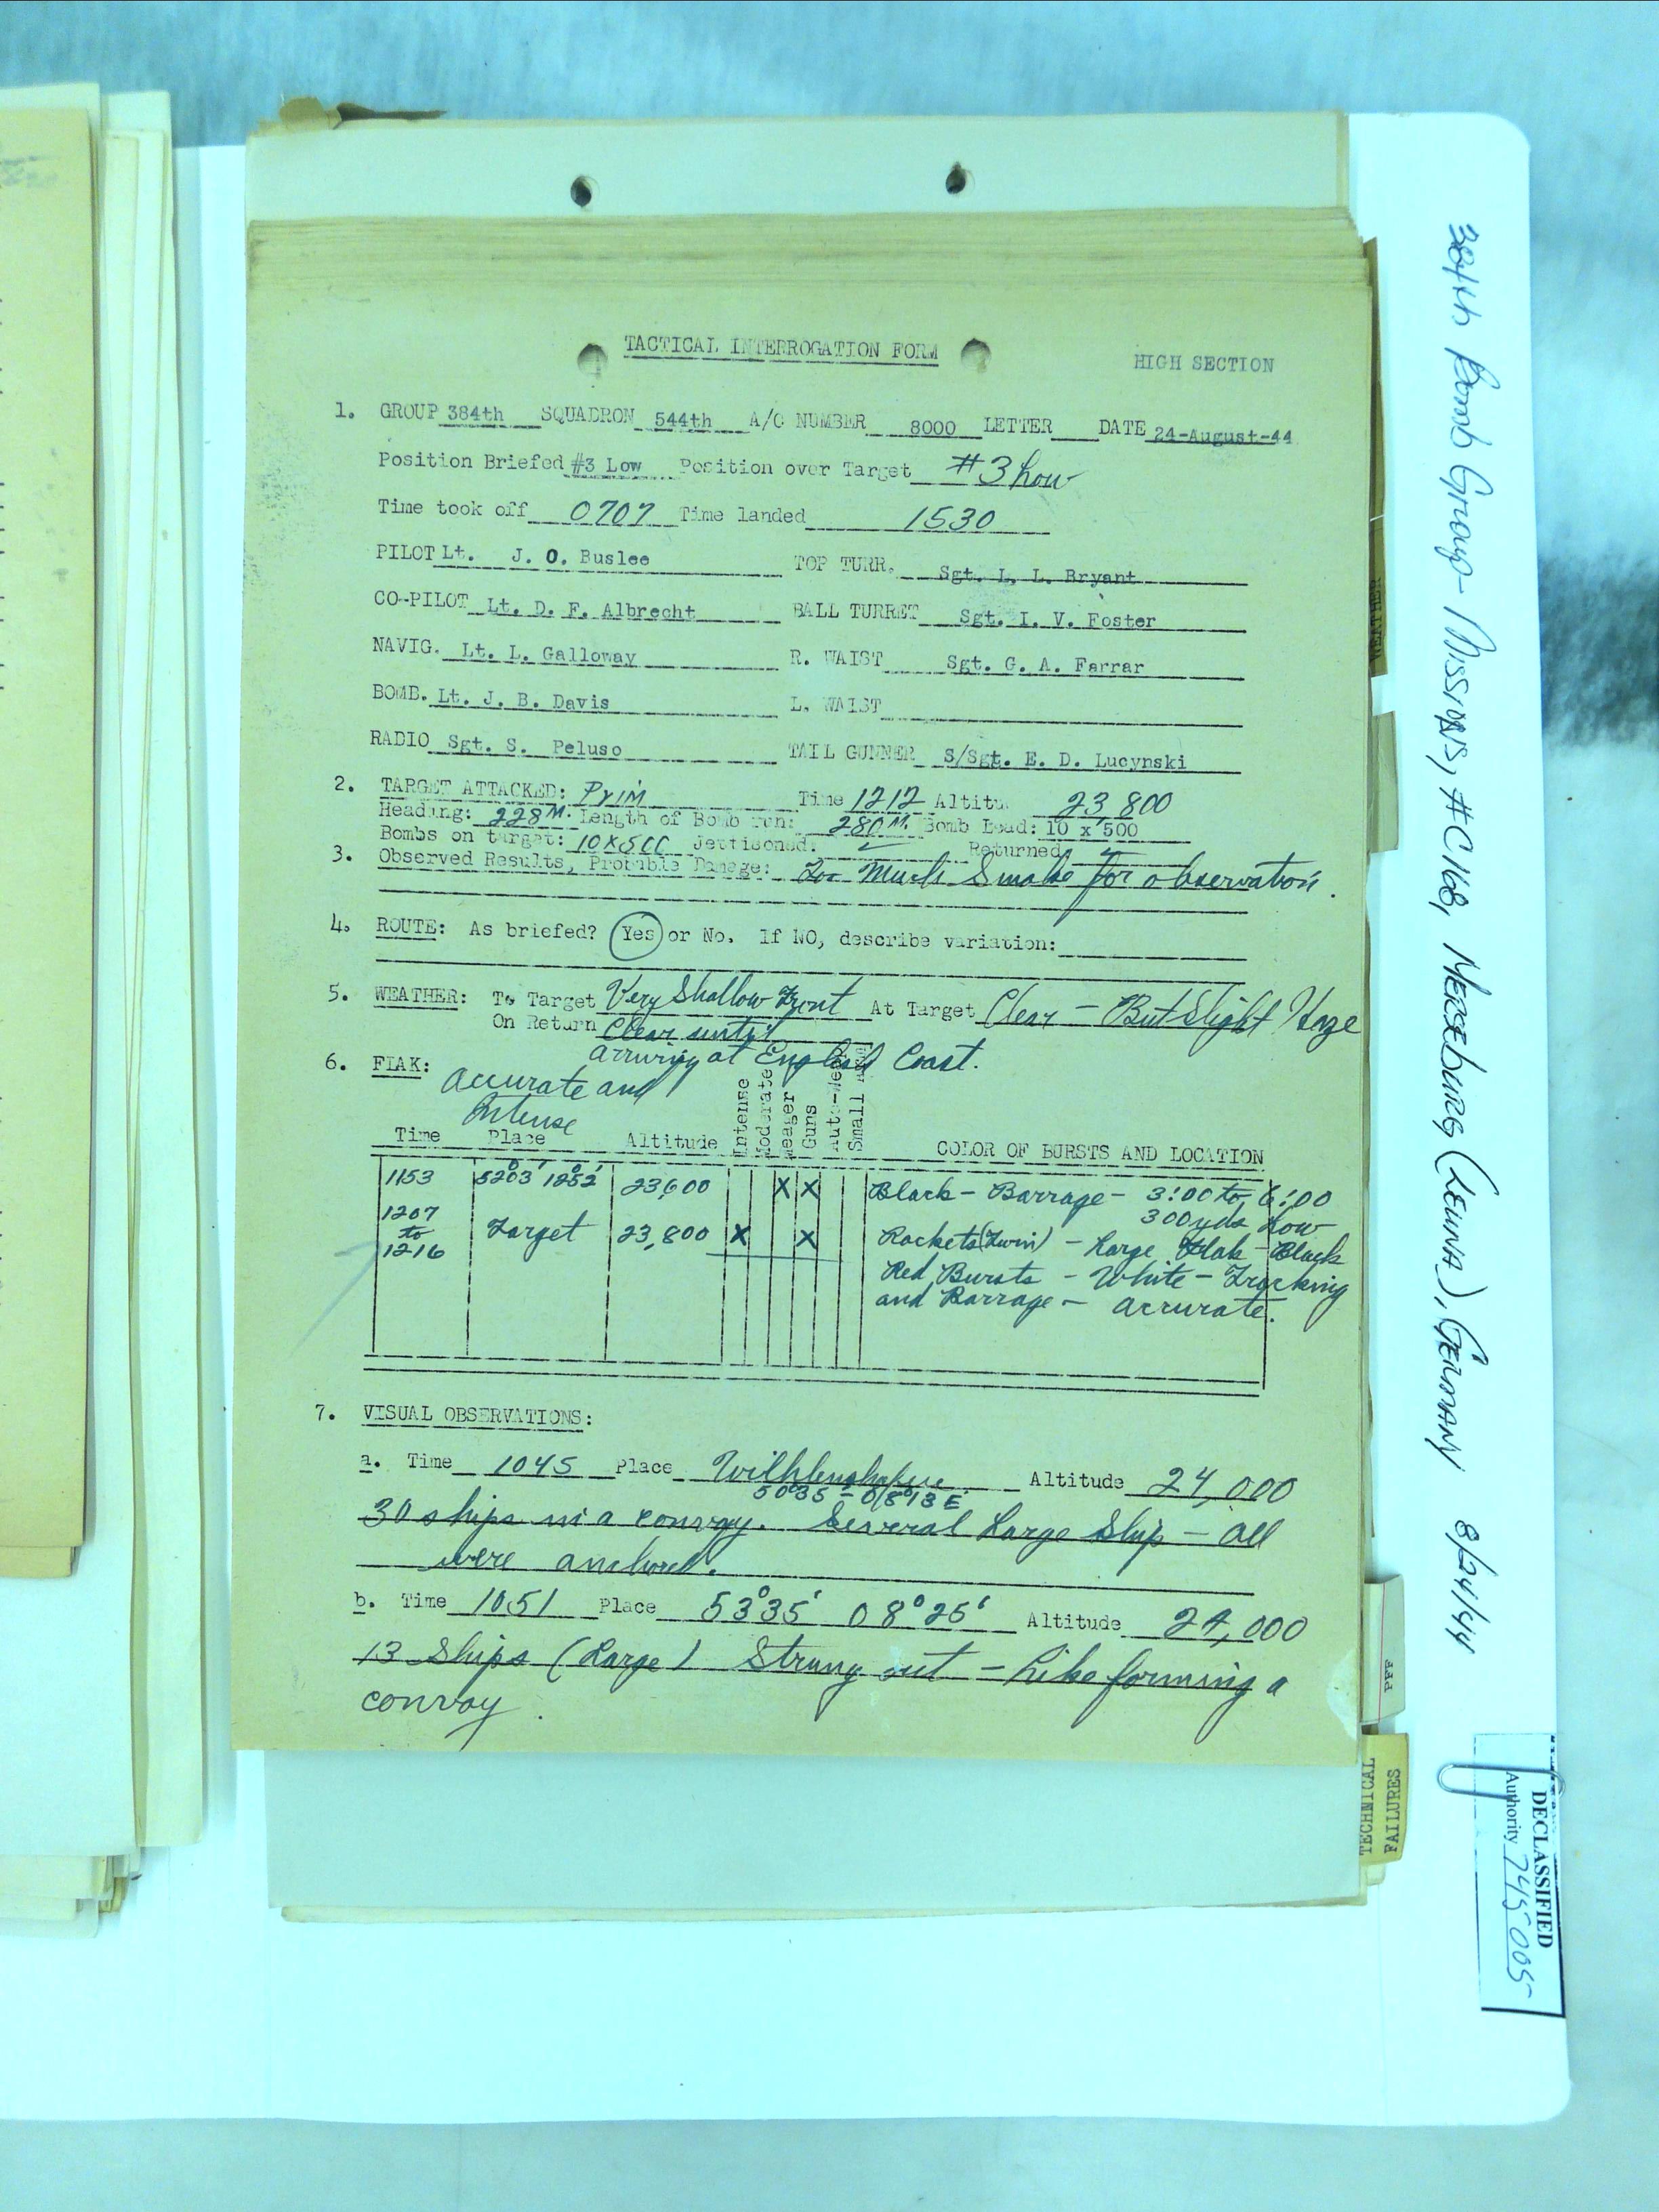 TACTICAL INTERROGATION FORM
HIGH SECTION
1. GROUP 384th SQUADRON 544th A/C NUMBER 8000 LETTER DATE 24-August-44
Position Briefed #3 Low Position over Target #3 Low
Time took off 0707 Time landed 1530
PILOT Lt. J. O. Buslee TOP TURR. Sgt. L. L. Bryant
CO-PILOT Lt. D. F. Albrecht BALL TURRET Sgt. I. V. Foster
NAVIG. Lt. L. Galloway R. WAIST Sgt. G. A. Farrar
BOMB. Lt. J. B. Davis L. WAIST
RADIO Sgt. S. Peluso TAIL GUNNER S/Sgt. E. D. Lucynski
2. TARGET ATTACKED: Prim Time 1212 Altitu 23,800
Heading: 228 M. Length of Bomb run: 280 M. Bomb Load: 10 x 500
Bombs on target: 10X500 Jettisoned: Returned
3. Observed Results, Probable Damage: Too Much Smoke for observation.
4. ROUTE: As briefed? Yes or No. If NO, describe variation:
5. WEATHER: To Target Very Shallow Front At Target Clear - But Slight Haze
On Return Clear until
arriving at English Coast.
6. FLAK: Accurate and
Intense
Time Place Altitude Intense Moderate Meager Guns Small COLOR OF BURSTS AND LOCATION
1153 52°03' 12°52' 23,600 X X Black - Barrage - 3:00 to 6:00
300 yds Low
1207 to 1216 Target 23,800 X X Rockets (Twin) - Large Flak - Black
Red Bursts - White - Tracking
and Barrage - accurate.
7. VISUAL OBSERVATIONS:
a. Time 1045 Place Altitude 24,000
30 ships in a convoy. Several Large Ship - all
were anchored.
b. Time 1051 Place 53°35' 08°25' Altitude 24,000
13 Ships (Large) Strung out - Like forming a
convoy.
384th Bomb Group - Missions, #C168, Merseburg (Leuna), Germany 8/24/44
WEATHER
PFF
TECHNICAL
FAILURES
DECLASSIFIED
Authority 745005